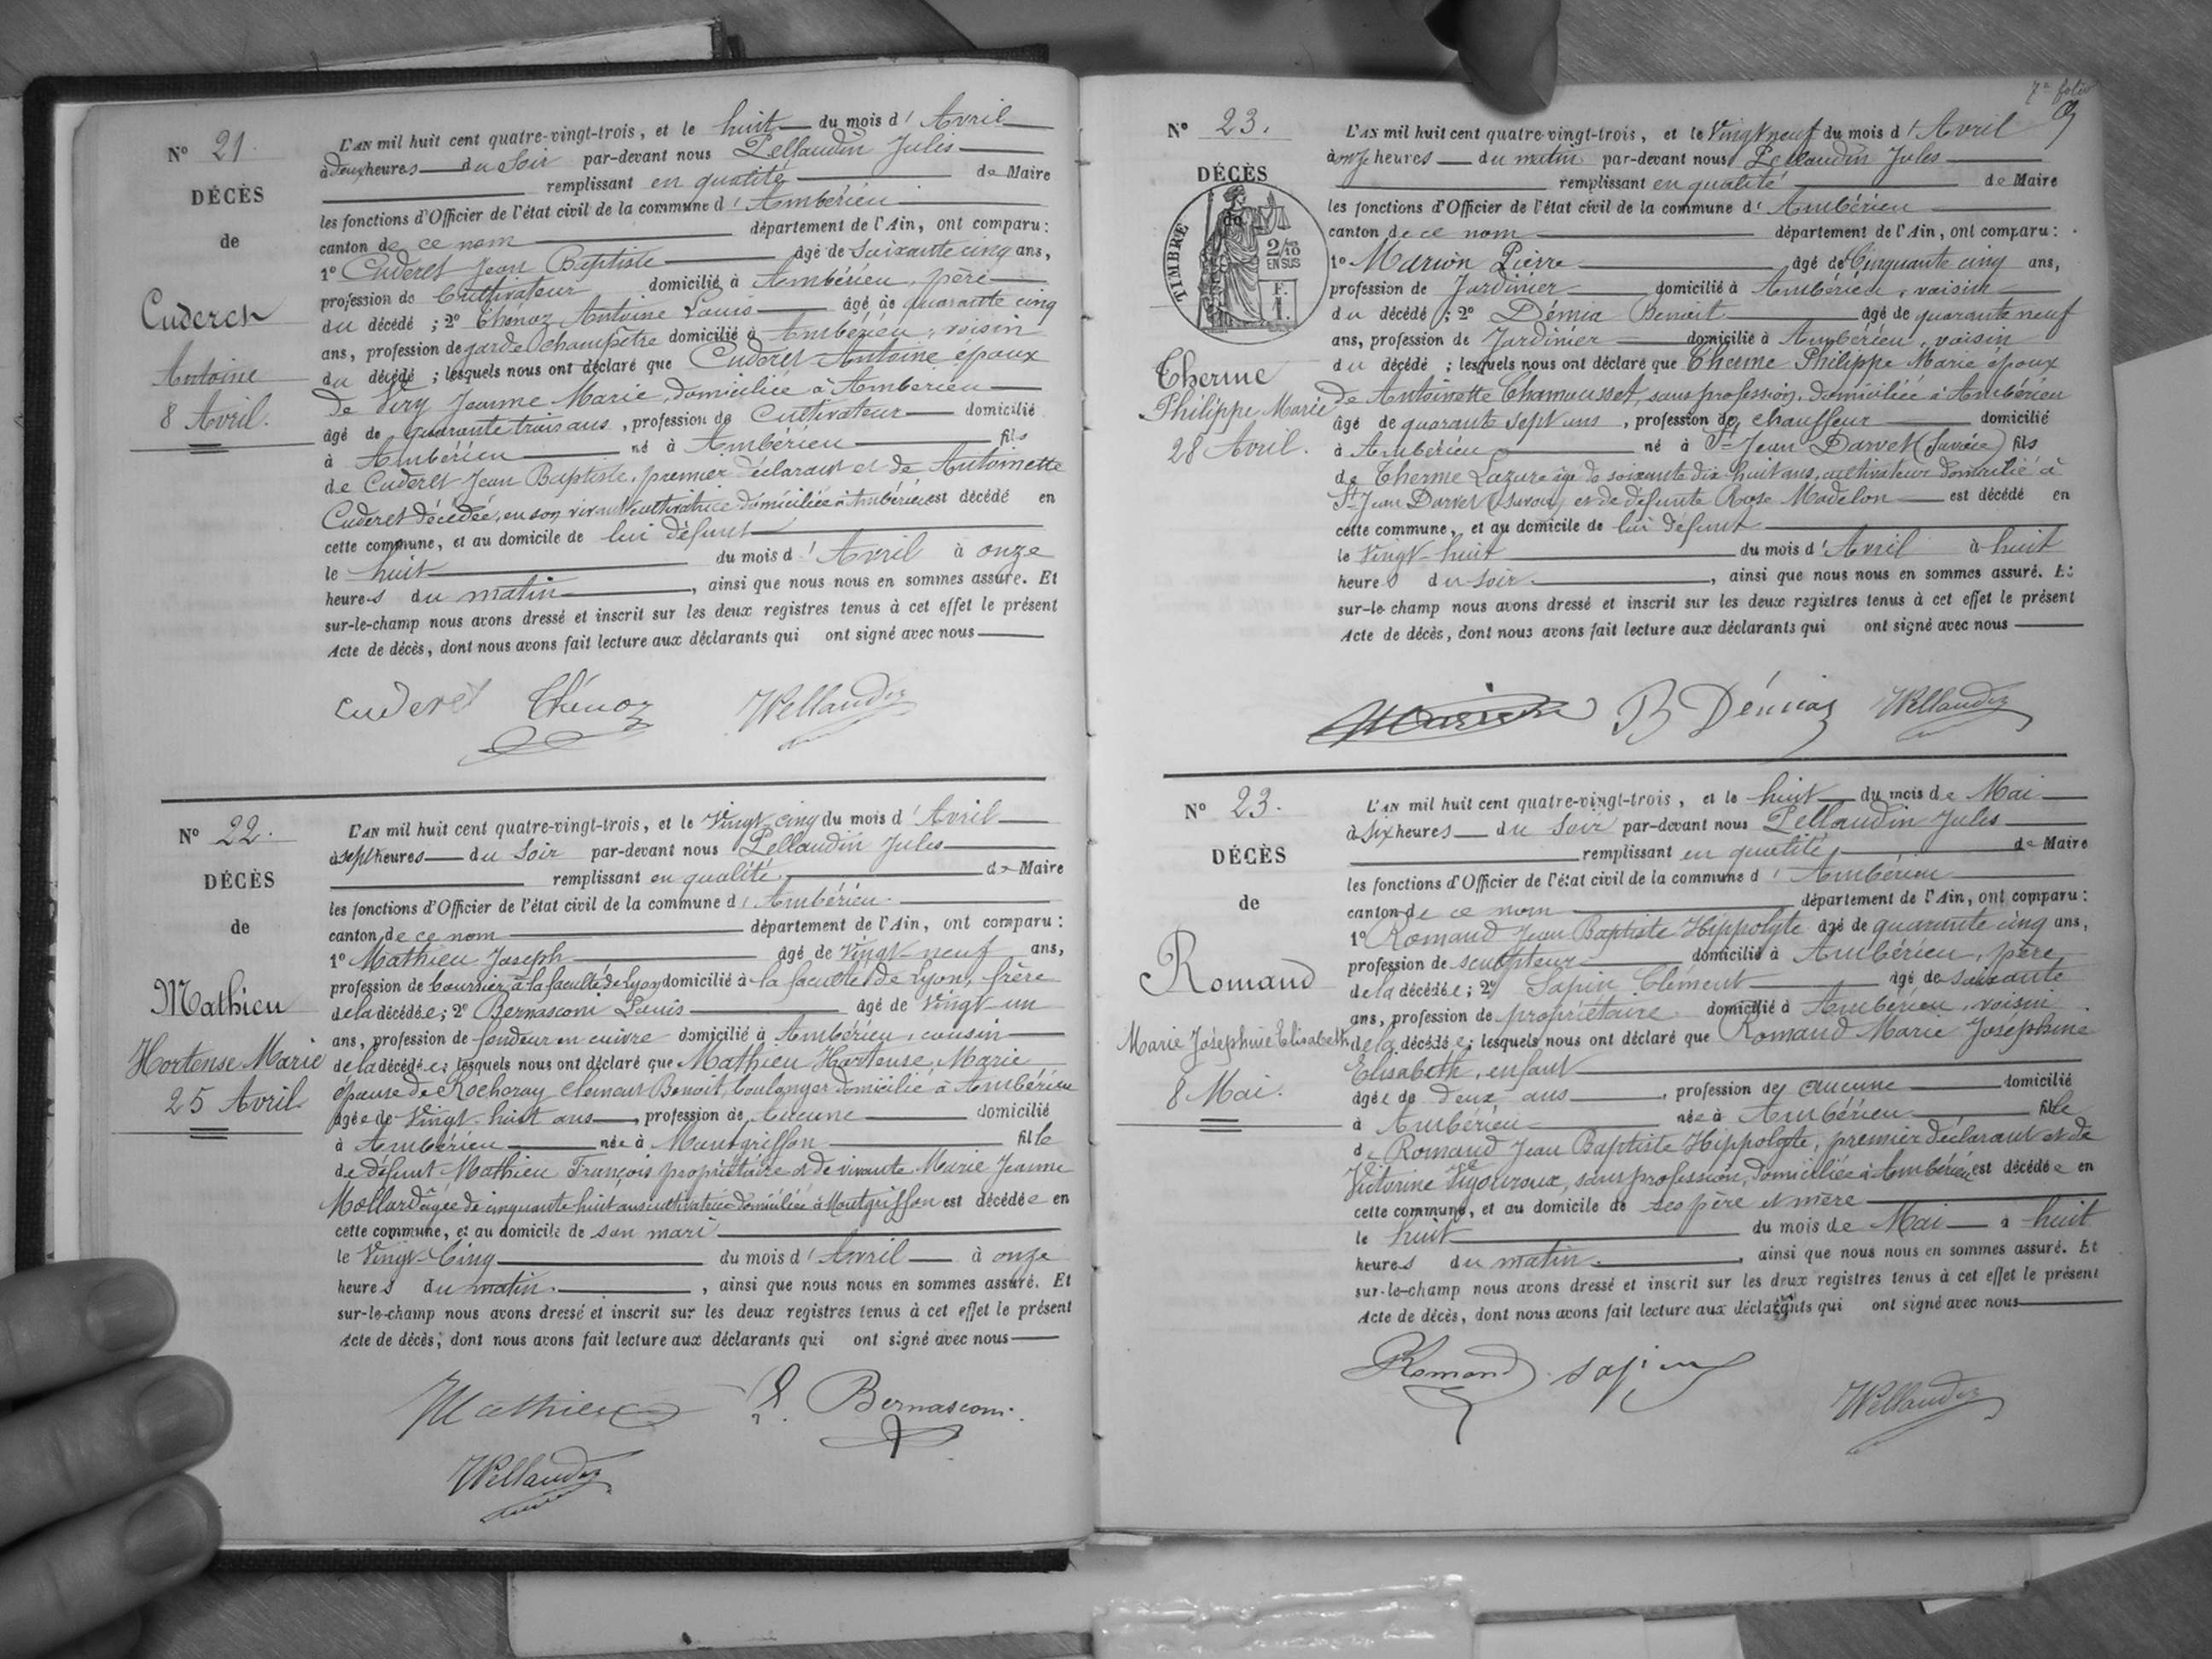 N° 21.
DÉCÈS
de
Cuderet
Antoine
8 Avril.
L'AN mil huit cent quatre-vingt-trois, et le huit du mois d' Avril
à deux heures du Soir par-devant nous Pellaudin Jules
remplissant en qualité de Maire
les fonctions d'Officier de l'état civil de la commune d' Ambérieu
canton de ce nom département de l'Ain, ont comparu:
1° Cuderet Jean Baptiste âgé de soixante cinq ans,
profession de Cultivateur domicilié à Ambérieu, père
du décédé ; 2° Thenoz Antoine Louis âgé de quarante cinq
ans, profession de garde champêtre domicilié à Ambérieu, voisin
du décédé ; lesquels nous ont déclaré que Cuderet Antoine époux
de Viry Jeanne Marie, domiciliée à Ambérieu
âgé de quarante trois ans, profession de Cultivateur domicilié
à Ambérieu né à Ambérieu fils
de Cuderet Jean Baptiste, premier déclarant et de Antoinette
Cuderet décédée, en son vivant cultivatrice domiciliée à Ambérieu est décédé en
cette commune, et au domicile de lui défunt
le huit du mois d' Avril à onze
heures du matin, ainsi que nous nous en sommes assuré. Et
sur-le-champ nous avons dressé et inscrit sur les deux registres tenus à cet effet le présent
Acte de décès, dont nous avons fait lecture aux déclarants qui ont signé avec nous
Cuderet Thénoz JPellaudin
N° 22.
DÉCÈS
de
Mathieu
Hortense Marie
25 Avril.
L'AN mil huit cent quatre-vingt-trois, et le Vingt-cinq du mois d' Avril
à sept heures du Soir par-devant nous Pellaudin Jules
remplissant en qualité de Maire
les fonctions d'Officier de l'état civil de la commune d' Ambérieu
canton de ce nom département de l'Ain, ont comparu:
1° Mathieu Joseph âgé de Vingt-neuf ans,
profession de boursier à la faculté de Lyon domicilié à la faculté de Lyon, frère
de la décédée; 2° Bernasconi Louis âgé de Vingt-un
ans, profession de fondeur en cuivre domicilié à Ambérieu, cousin
de la décédée; lesquels nous ont déclaré que Mathieu Hortense Marie
épouse de Rochoray Clément Benoit, boulanger domicilié à Ambérieu
âgée de Vingt-huit ans, profession de Aucune domicilié
à Ambérieu née à Montgriffon fille
de défunt Mathieu François propriétaire et de vivante Marie Jeanne
Mollard âgée de cinquante huit ans cultivatrice domiciliée à Montgriffon est décédée en
cette commune, et au domicile de son mari
le Vingt-Cinq du mois d' Avril à onze
heures du matin, ainsi que nous nous en sommes assuré. Et
sur-le-champ nous avons dressé et inscrit sur les deux registres tenus à cet effet le présent
Acte de décès, dont nous avons fait lecture aux déclarants qui ont signé avec nous
Mathieu L. Bernasconi
JPellaudin
7e folio
N° 23.
DÉCÈS
de
TIMBRE
2/10
EN SUS
F.
1.
Therme
Philippe Marie
28 Avril.
L'AN mil huit cent quatre-vingt-trois, et le Vingt neuf du mois d' Avril
à onze heures du matin par-devant nous Pellaudin Jules
remplissant en qualité de Maire
les fonctions d'Officier de l'état civil de la commune d' Ambérieu
canton de ce nom département de l'Ain, ont comparu:
1° Marion Pierre âgé de Cinquante cinq ans,
profession de Jardinier domicilié à Ambérieu, voisin
du décédé ; 2° Démia Benoit âgé de quarante neuf
ans, profession de Jardinier domicilié à Ambérieu, voisin
du décédé ; lesquels nous ont déclaré que Therme Philippe Marie époux
de Antoinette Chamousset, sans profession, domiciliée à Ambérieu
âgé de quarante sept ans, profession de chauffeur domicilié
à Ambérieu né à St Jean Darvet (Savoie) fils
de Therme Lazare âgé de soixante dix huit ans, cultivateur domicilié à
St Jean Darvet (Savoie) et de défunte Rose Madelon est décédé en
cette commune, et au domicile de lui défunt
le Vingt-huit du mois d' Avril à huit
heures du soir, ainsi que nous nous en sommes assuré. Et
sur-le-champ nous avons dressé et inscrit sur les deux registres tenus à cet effet le présent
Acte de décès, dont nous avons fait lecture aux déclarants qui ont signé avec nous
Marion B Démias JPellaudin
N° 23.
DÉCÈS
de
Romand
Marie Joséphine Elisabeth
8 Mai.
L'AN mil huit cent quatre-vingt-trois, et le huit du mois de Mai
à six heures du Soir par-devant nous Pellaudin Jules
remplissant en qualité de Maire
les fonctions d'Officier de l'état civil de la commune d' Ambérieu
canton de ce nom département de l'Ain, ont comparu:
1° Romand Jean Baptiste Hippolyte âgé de quarante cinq ans,
profession de sculpteur domicilié à Ambérieu, père
de la décédée; 2° Sapin Clément âgé de soixante
ans, profession de propriétaire domicilié à Ambérieu, voisin
de la décédée; lesquels nous ont déclaré que Romand Marie Joséphine
Elisabeth, enfant
âgée de deux ans, profession de aucune domicilié
à Ambérieu née à Ambérieu fille
de Romand Jean Baptiste Hippolyte, premier déclarant et de
Victorine Vigouroux, sans profession, domiciliée à Ambérieu est décédée en
cette commune, et au domicile de ses père et mère
le huit du mois de Mai à huit
heures du matin, ainsi que nous nous en sommes assuré. Et
sur-le-champ nous avons dressé et inscrit sur les deux registres tenus à cet effet le présent
Acte de décès, dont nous avons fait lecture aux déclarants qui ont signé avec nous
Romand sapin
JPellaudin